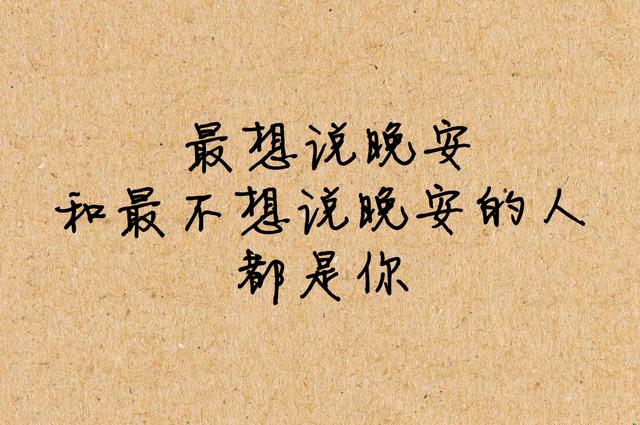 最想说晚安
和最不想说晚安的人
都是你